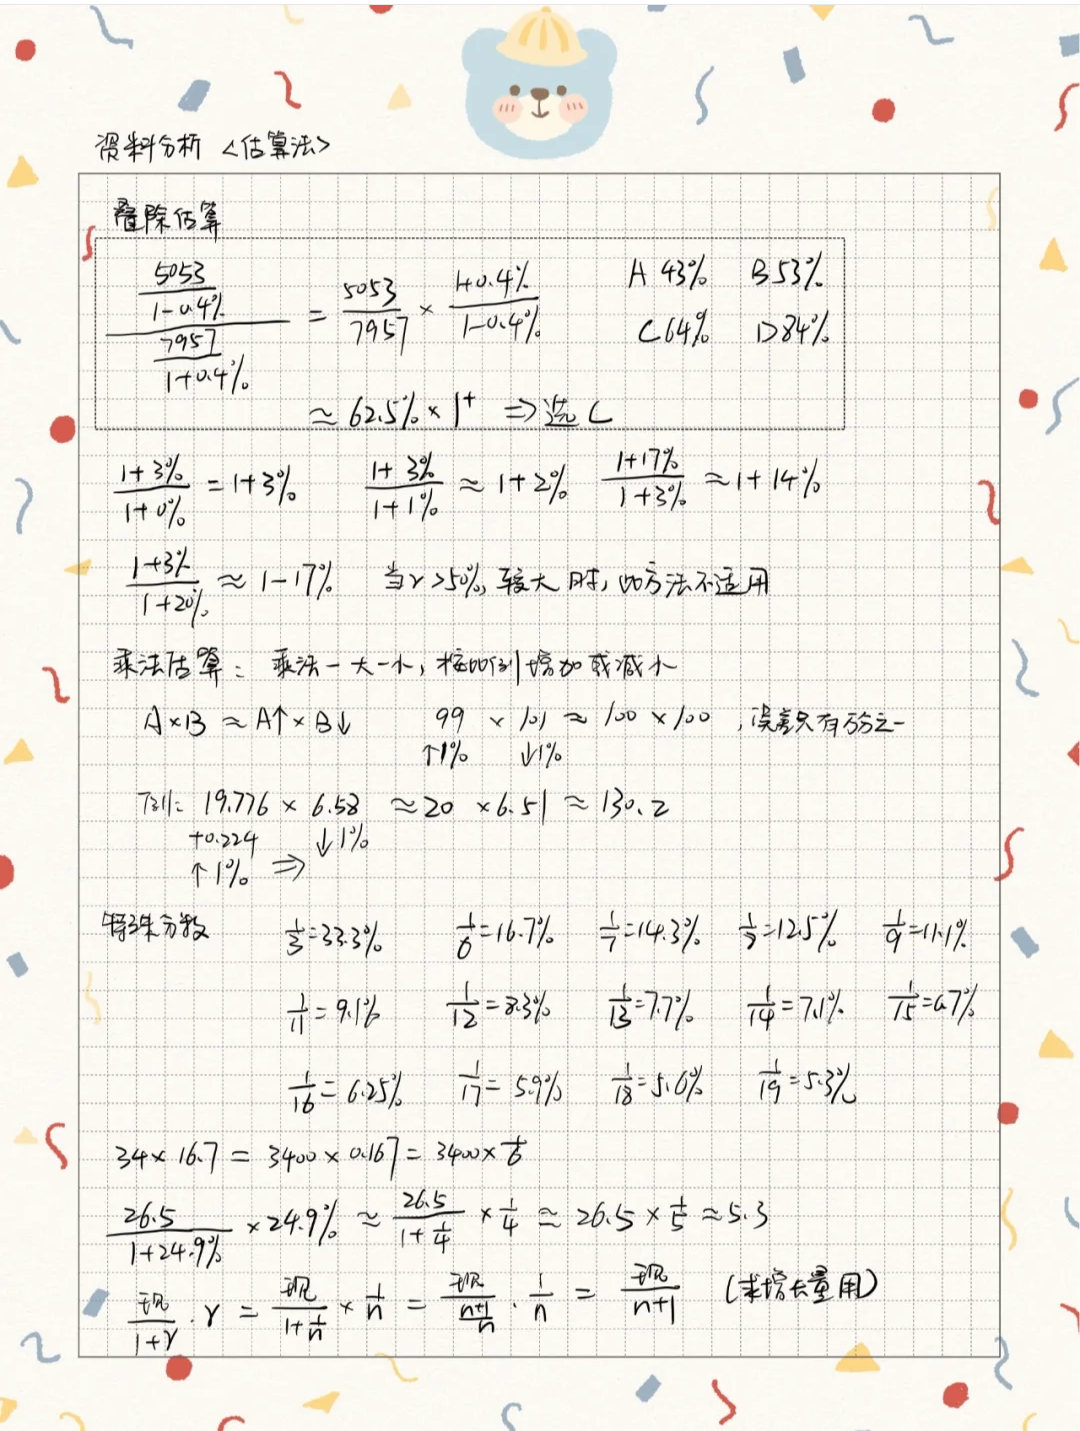 资料分析 <估算法>
叠除估算
(5053/(1-0.4%))/(7957/(1+0.4%)) = 5053/7957 × (1+0.4%)/(1-0.4%) A 43% B 53%
C 64% D 84%
≈ 62.5% × 1⁺ ⇒ 选 C
(1+3%)/(1+0%) = 1+3% (1+3%)/(1+1%) ≈ 1+2% (1+17%)/(1+3%) ≈ 1+14%
(1+3%)/(1+20%) ≈ 1-17% 当r>50%, 较大时, 此方法不适用
乘法估算: 乘法一大一小, 按比例增加或减小
A×B ≈ A↑×B↓ 99 × 101 ≈ 100 × 100, 误差只有万分之一
↑1% ↓1%
例: 19.776 × 6.58 ≈ 20 × 6.51 ≈ 130.2
+0.224 ↓1%
↑1% ⇒
特殊分数 1/3=33.3% 1/6=16.7% 1/7=14.3% 1/8=12.5% 1/9=11.1%
1/11=9.1% 1/12=8.3% 1/13=7.7% 1/14=7.1% 1/15=6.7%
1/16=6.25% 1/17=5.9% 1/18=5.6% 1/19=5.3%
34×16.7 = 3400×0.167 = 3400×1/6
26.5/(1+24.9%) ×24.9% ≈ 26.5/(1+1/4) × 1/4 ≈ 26.5 × 1/5 ≈ 5.3
现/(1+r) · r = 现/(1+1/n) × 1/n = 现/((n+1)/n) · 1/n = 现/(n+1) (求增长量用)